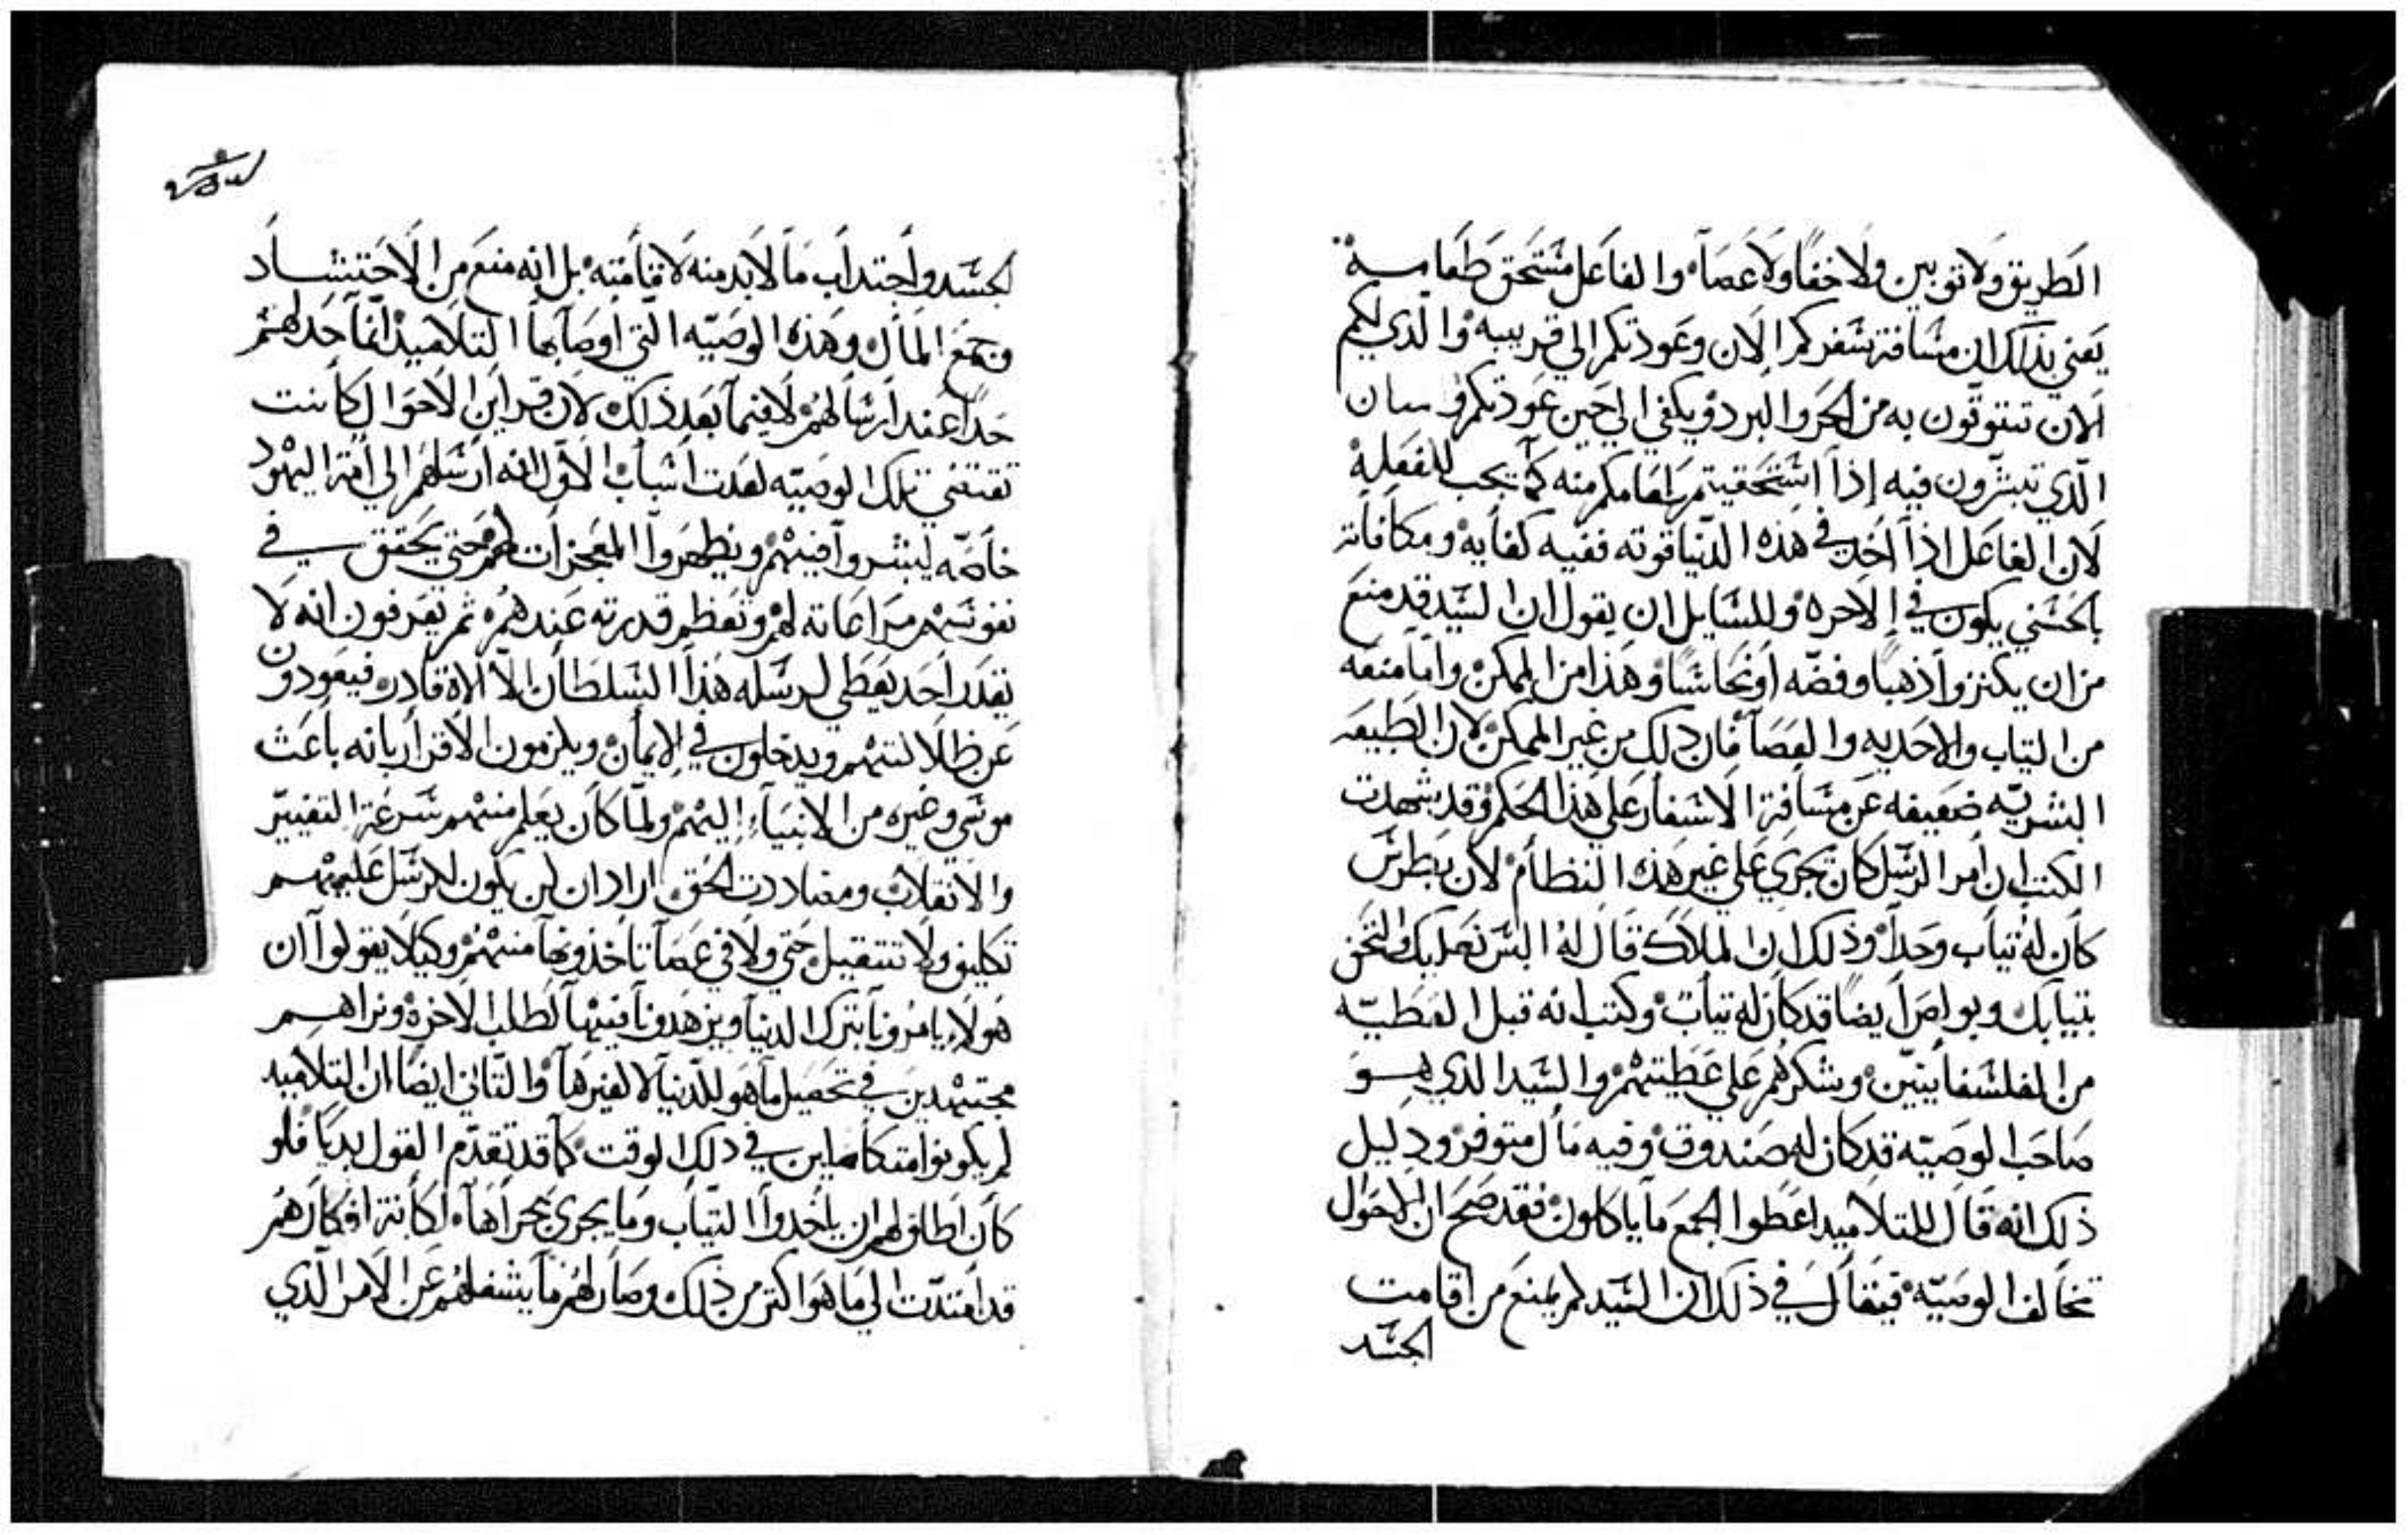 الطريق ولا توبين ولا خفا ولا عصاه والفاعل مستحق طعامه
يعني بذلك ان مسافة سفركم الان وعودتكم الي قريبه والذي لكم
الان تتوقون به من الحر والبرد ويكفي الي حين عودتكم
الذي تبشرون فيه إذا استحقيتم طعامكم منه كما يجب للفعله
لان الفاعل اذا اخد في هذه الدنيا قوته ففيه كفايه ومكافاته
بالحسني يكون في الاخره وللسايل ان يقول ان السيد قد منع
من ان يكنزوا ذهبا وفضه أو نحاسا وهذا من الممكن واما منعه
من التياب والاحديه والعصا فان دلك من غير الممكن لان الطبيعه
البشريه ضعيفه عن مسافة الاسفار علي هذا الحكم وقد شهدت
الكتب ان أمر الرسل كان تجري علي غير هذه النظام لان بطرس
كان له تياب وحدا وذلك ان الملاك قال له البس نعليك والتحف
بتيابك وبولص أيضا قد كان له تياب وكتب انه قبل العطيه
من الفلسفايبين وشكرهم علي عطيتهم والسيد الذي هو
صاحب الوصيه قد كان له صندوق وفيه مال متوفر ودليل
ذلك انه قال للتلاميد اعطوا الجمع ما ياكلون فقد صح ان الاحوال
تخالف الوصيه فيقال في ذلك ان السيد لم يمنع من اقامت
الجسد
الجسد واجتداب ما لا بد منه لاقامته بل انه منع من الاحتشاد
وجمع المال وهذه الوصيه التي أوصا بها التلاميد انما حد لهم
حدا عند ارسالهم لا فيما بعد ذلك لان قراين الاحوال كانت
تقتضي تلك الوصيه لعدت اسباب الاول انه ارسلهم الي امة اليهود
خاصه ليبشروا فيهم ويظهروا المعجزات لهم حتي يحقق في
نفوسهم مراعاته لهم وتعظم قدرته عندهم ثم يعرفون انه لا
يقدر احد يعطي لرسله هذا السلطان الا الاه قادر فيعودون
عن ظلالتهم ويدخلون في الايمان ويلزمون الاقرار بانه باعث
موسي وغيره من الانبياء إليهم ولما كان يعلم منهم سرعة التغيير
والانقلاب ومضاددت الحق اراد ان لن يكون للرسل عليهم
تكليف ولا تتقيل حتي ولا في عصا تاخذونها منهم وكيلا يقولوا ان
هولاء يامرونا بترك الدنيا ويزهدونا فيها لطلب الاخرة ونراهم
مجتهدين في تحصيل ما هو للدنيا لا لغيرها والتاني ايضا ان التلاميد
لم يكونوا متكاملين في دلك الوقت كما قد تقدم القول بديا فلو
كان اطلق لهم ان ياخدوا التياب وما يجري مجراها لكانت افكارهم
قد امتدت الي ما هو اكتر من ذلك وصار لهم ما يشغلهم عن الامر الذي